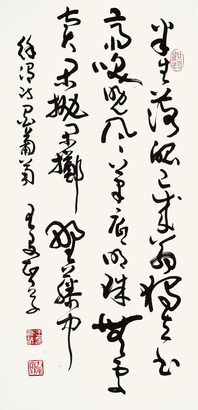 半生落魄已成翁独立书
斋啸晚风笔底明珠无处
卖闲抛闲掷野藤中
徐渭诗墨葡萄